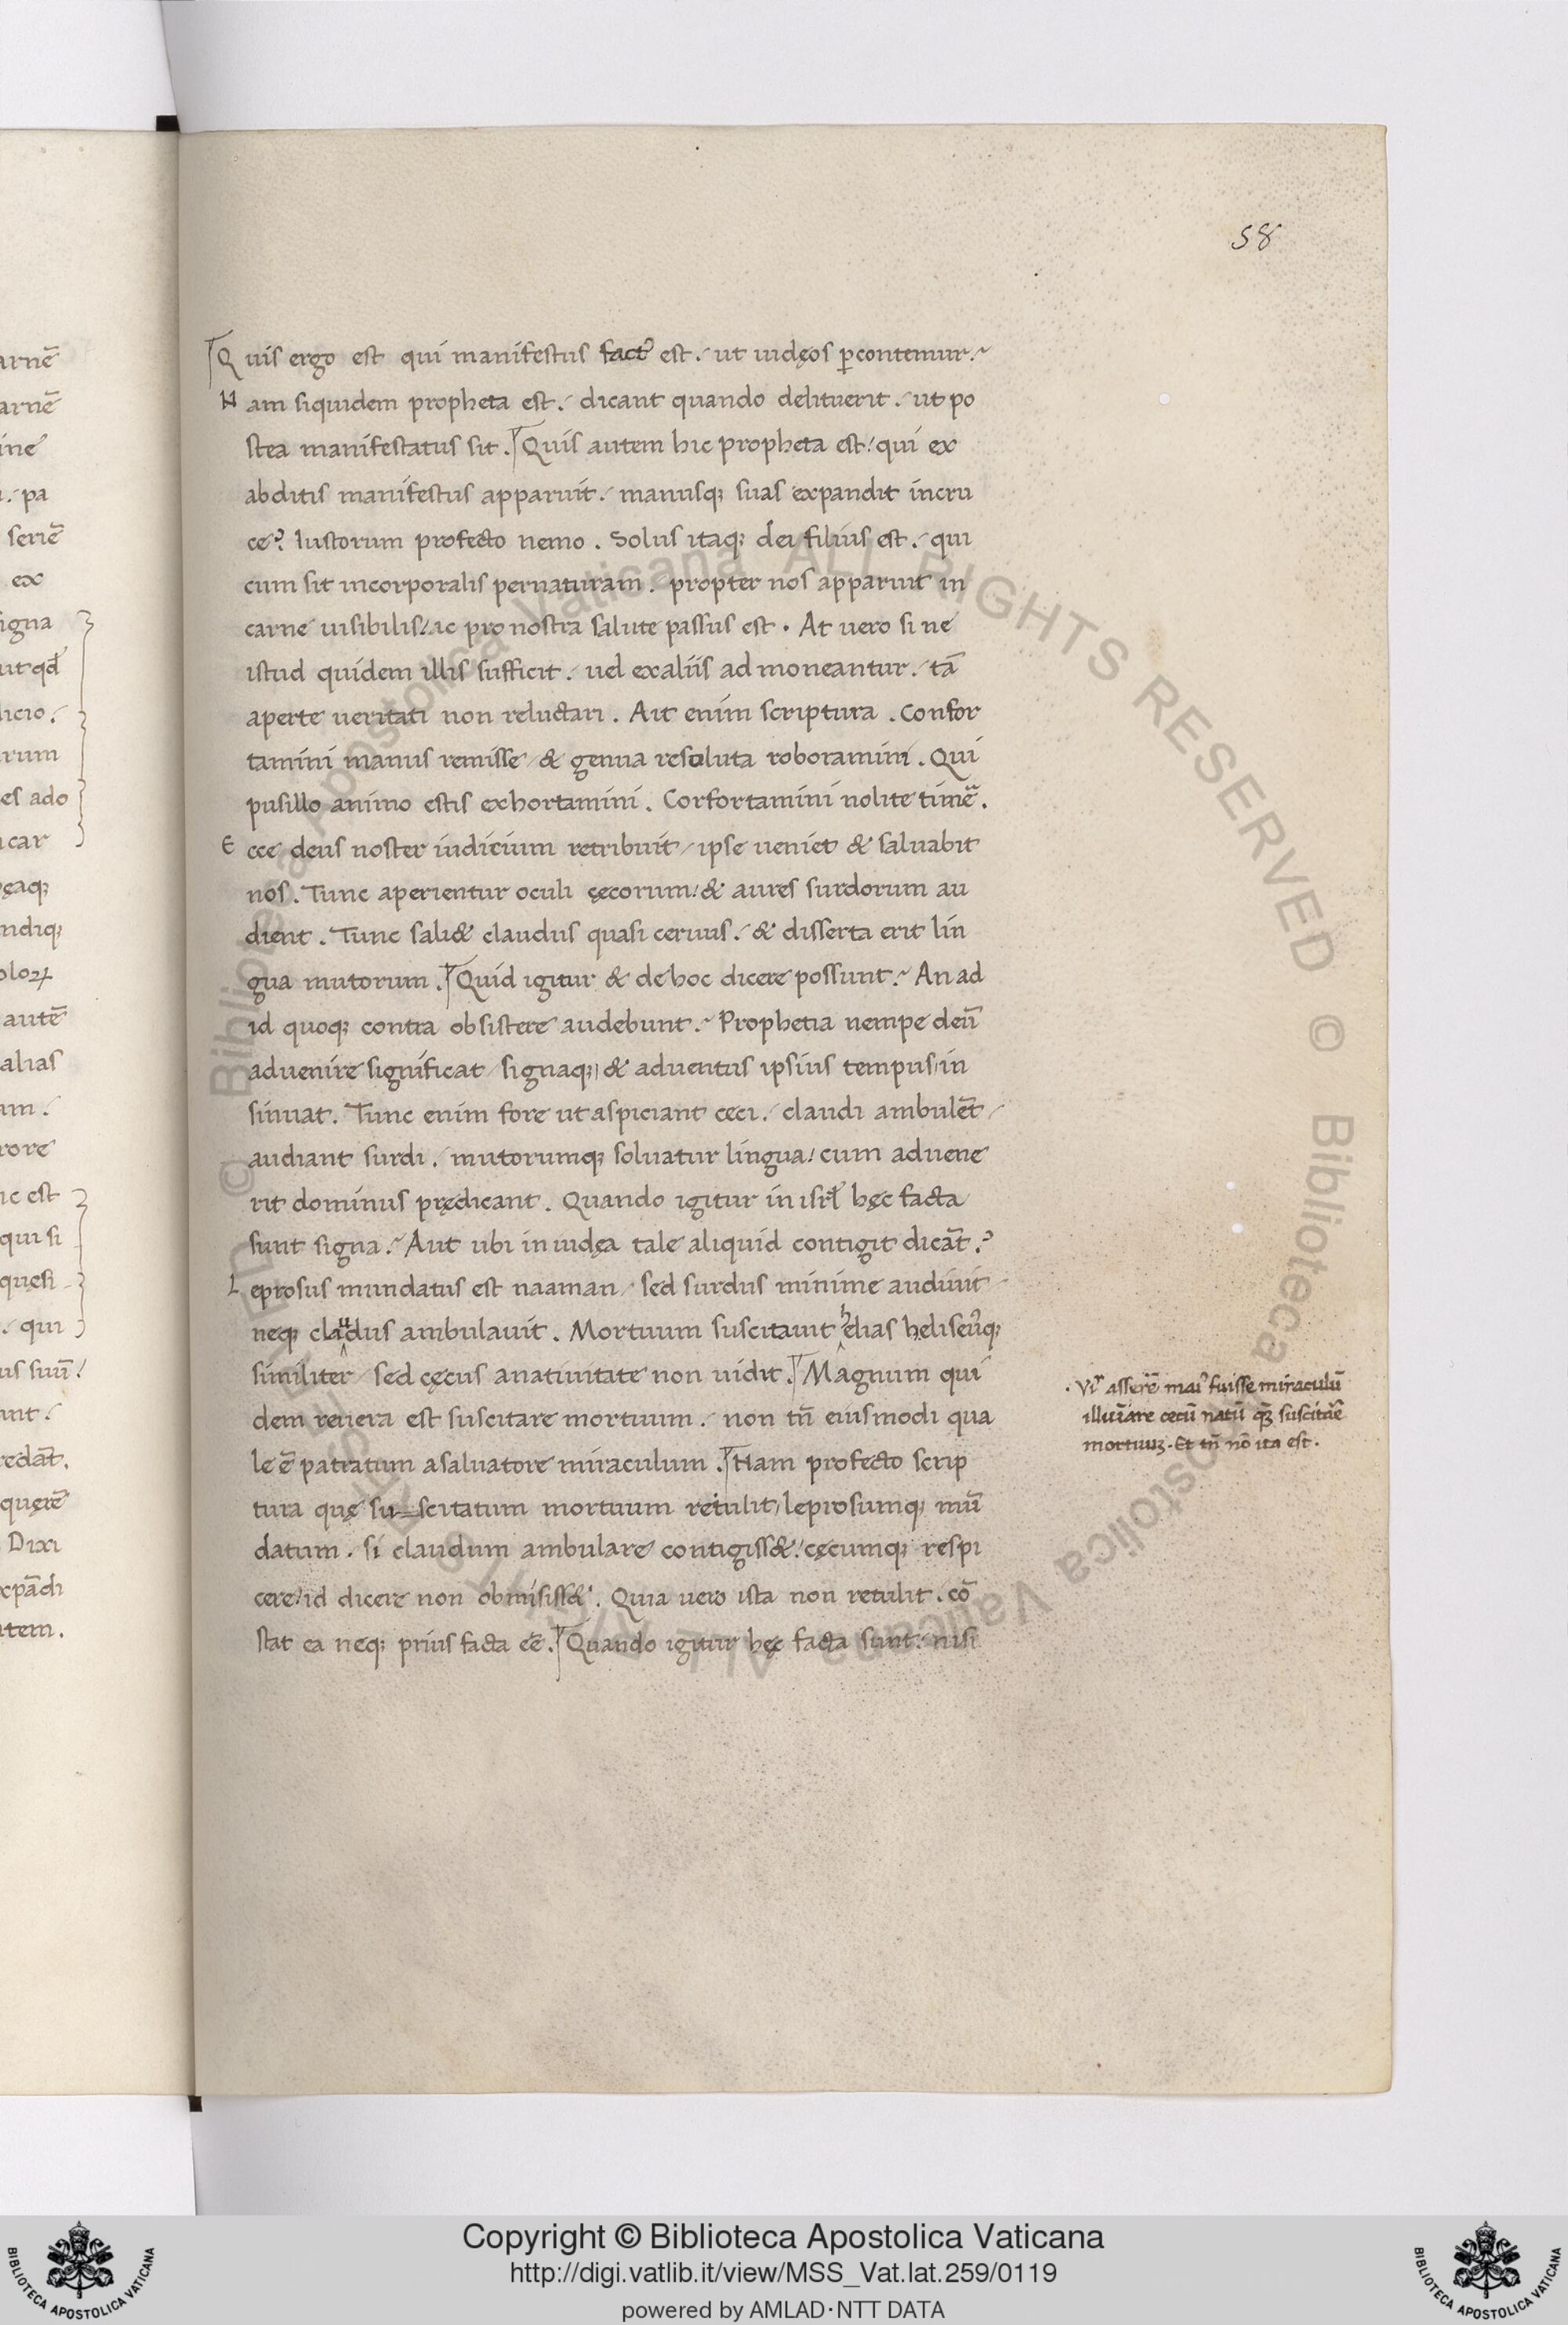 58
Quis ergo est qui manifestus fact9 est. ut iudęos ꝑcontemur.
Nam siquidem propheta est. dicant quando delituerit. ut po
stea manifestatus sit. Quis autem hic propheta est! qui ex
abditis manifestus apparuit. manusqꝫ suas expandit incru
ce? Iustorum profecto nemo. Solus itaqꝫ dei filius est. qui
cum sit incorporalis pernaturam. propter nos apparuit in
carne uisibilis! ac pro nostra salute passus est. At uero si ne
istud quidem illis sufficit. uel exaliis ad moneantur. tā
aperte ueritati non reluctari. Ait enim scriptura. Confor
tamini manus remisse & genua resoluta roboramini. Qui
pusillo animo estis exhortamini. Corfortamini nolite timē.
Ecce deus noster iudicium retribuit ipse ueniet & saluabit
nos. Tunc aperientur oculi çęcorum! & aures surdorum au
dient. Tunc sali& claudus quasi ceruus. & disserta erit lin
gua mutorum. Quid igitur & de hoc dicere possunt. An ad
id quoqꝫ contra obsistere audebunt. Prophetia nempe deū
aduenire significat signaqꝫ & aduentus ipsius tempus in
sinuat. Tunc enim fore ut aspiciant ceci. claudi ambulēt
audiant surdi. mutorumqꝫ soluatur lingua! cum aduene
rit dominus prędicant. Quando igitur in isrł hęc facta
sunt signa. Aut ubi in iudęa tale aliquid contigit dicāt.?
Leprosus mundatus est naaman sed surdus minime audiuit
neqꝫ claudus ambulauit. Mortuum suscitauit helias heliseu9qꝫ
similiter sed cęcus anatiuitate non uidit. Magnum qui
dem reuera est suscitare mortuum. non tn̄ eiusmodi qua
le ē patratum asaluatore miraculum. Nam profecto scrip
tura quę suscitatum mortuum retulit leprosumqꝫ mū
datum. si claudum ambulare contigiss&! cęcumqꝫ respi
cere! id dicere non obmisiss&. Quia uero ista non retulit. cō
stat ea neqꝫ prius facta eē. Quando igitur hęc facta sunt. nisi
asserē mai9 fuisse miraculū
illuīare cecū natū qꝫ suscitāe
mortuuꝫ. Et tn̄ nō ita est.
Copyright © Biblioteca Apostolica Vaticana
http://digi.vatlib.it/view/MSS_Vat.lat.259/0119
powered by AMLAD·NTT DATA